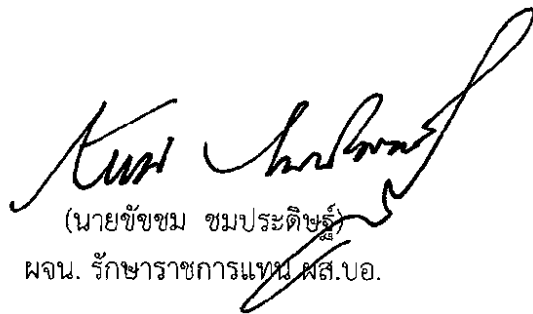 (นายขัขชม ชมประดิษฐ์)
ผจน. รักษาราชการแทน ผส.บอ.